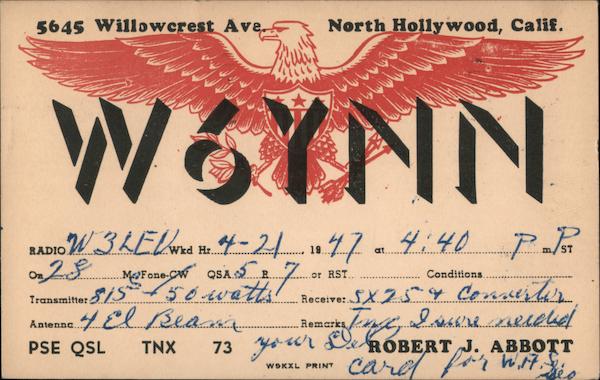 5645 Willowcrest Ave. North Hollywood, Calif.
W6YNN
RADIO W3LEV Wkd Hr. 4-21, 1947 at 4:40 P m PST
On 28 Mc Fone-CW QSA 5 R 7 or RST Conditions
Transmitter 815 - 50 watts Receiver SX25 & Converter
Antenna 4 El Beam Remarks Tnx I sure needed
your Del.
PSE QSL TNX 73 ROBERT J. ABBOTT
card for W.A.S.
W9KXL PRINT